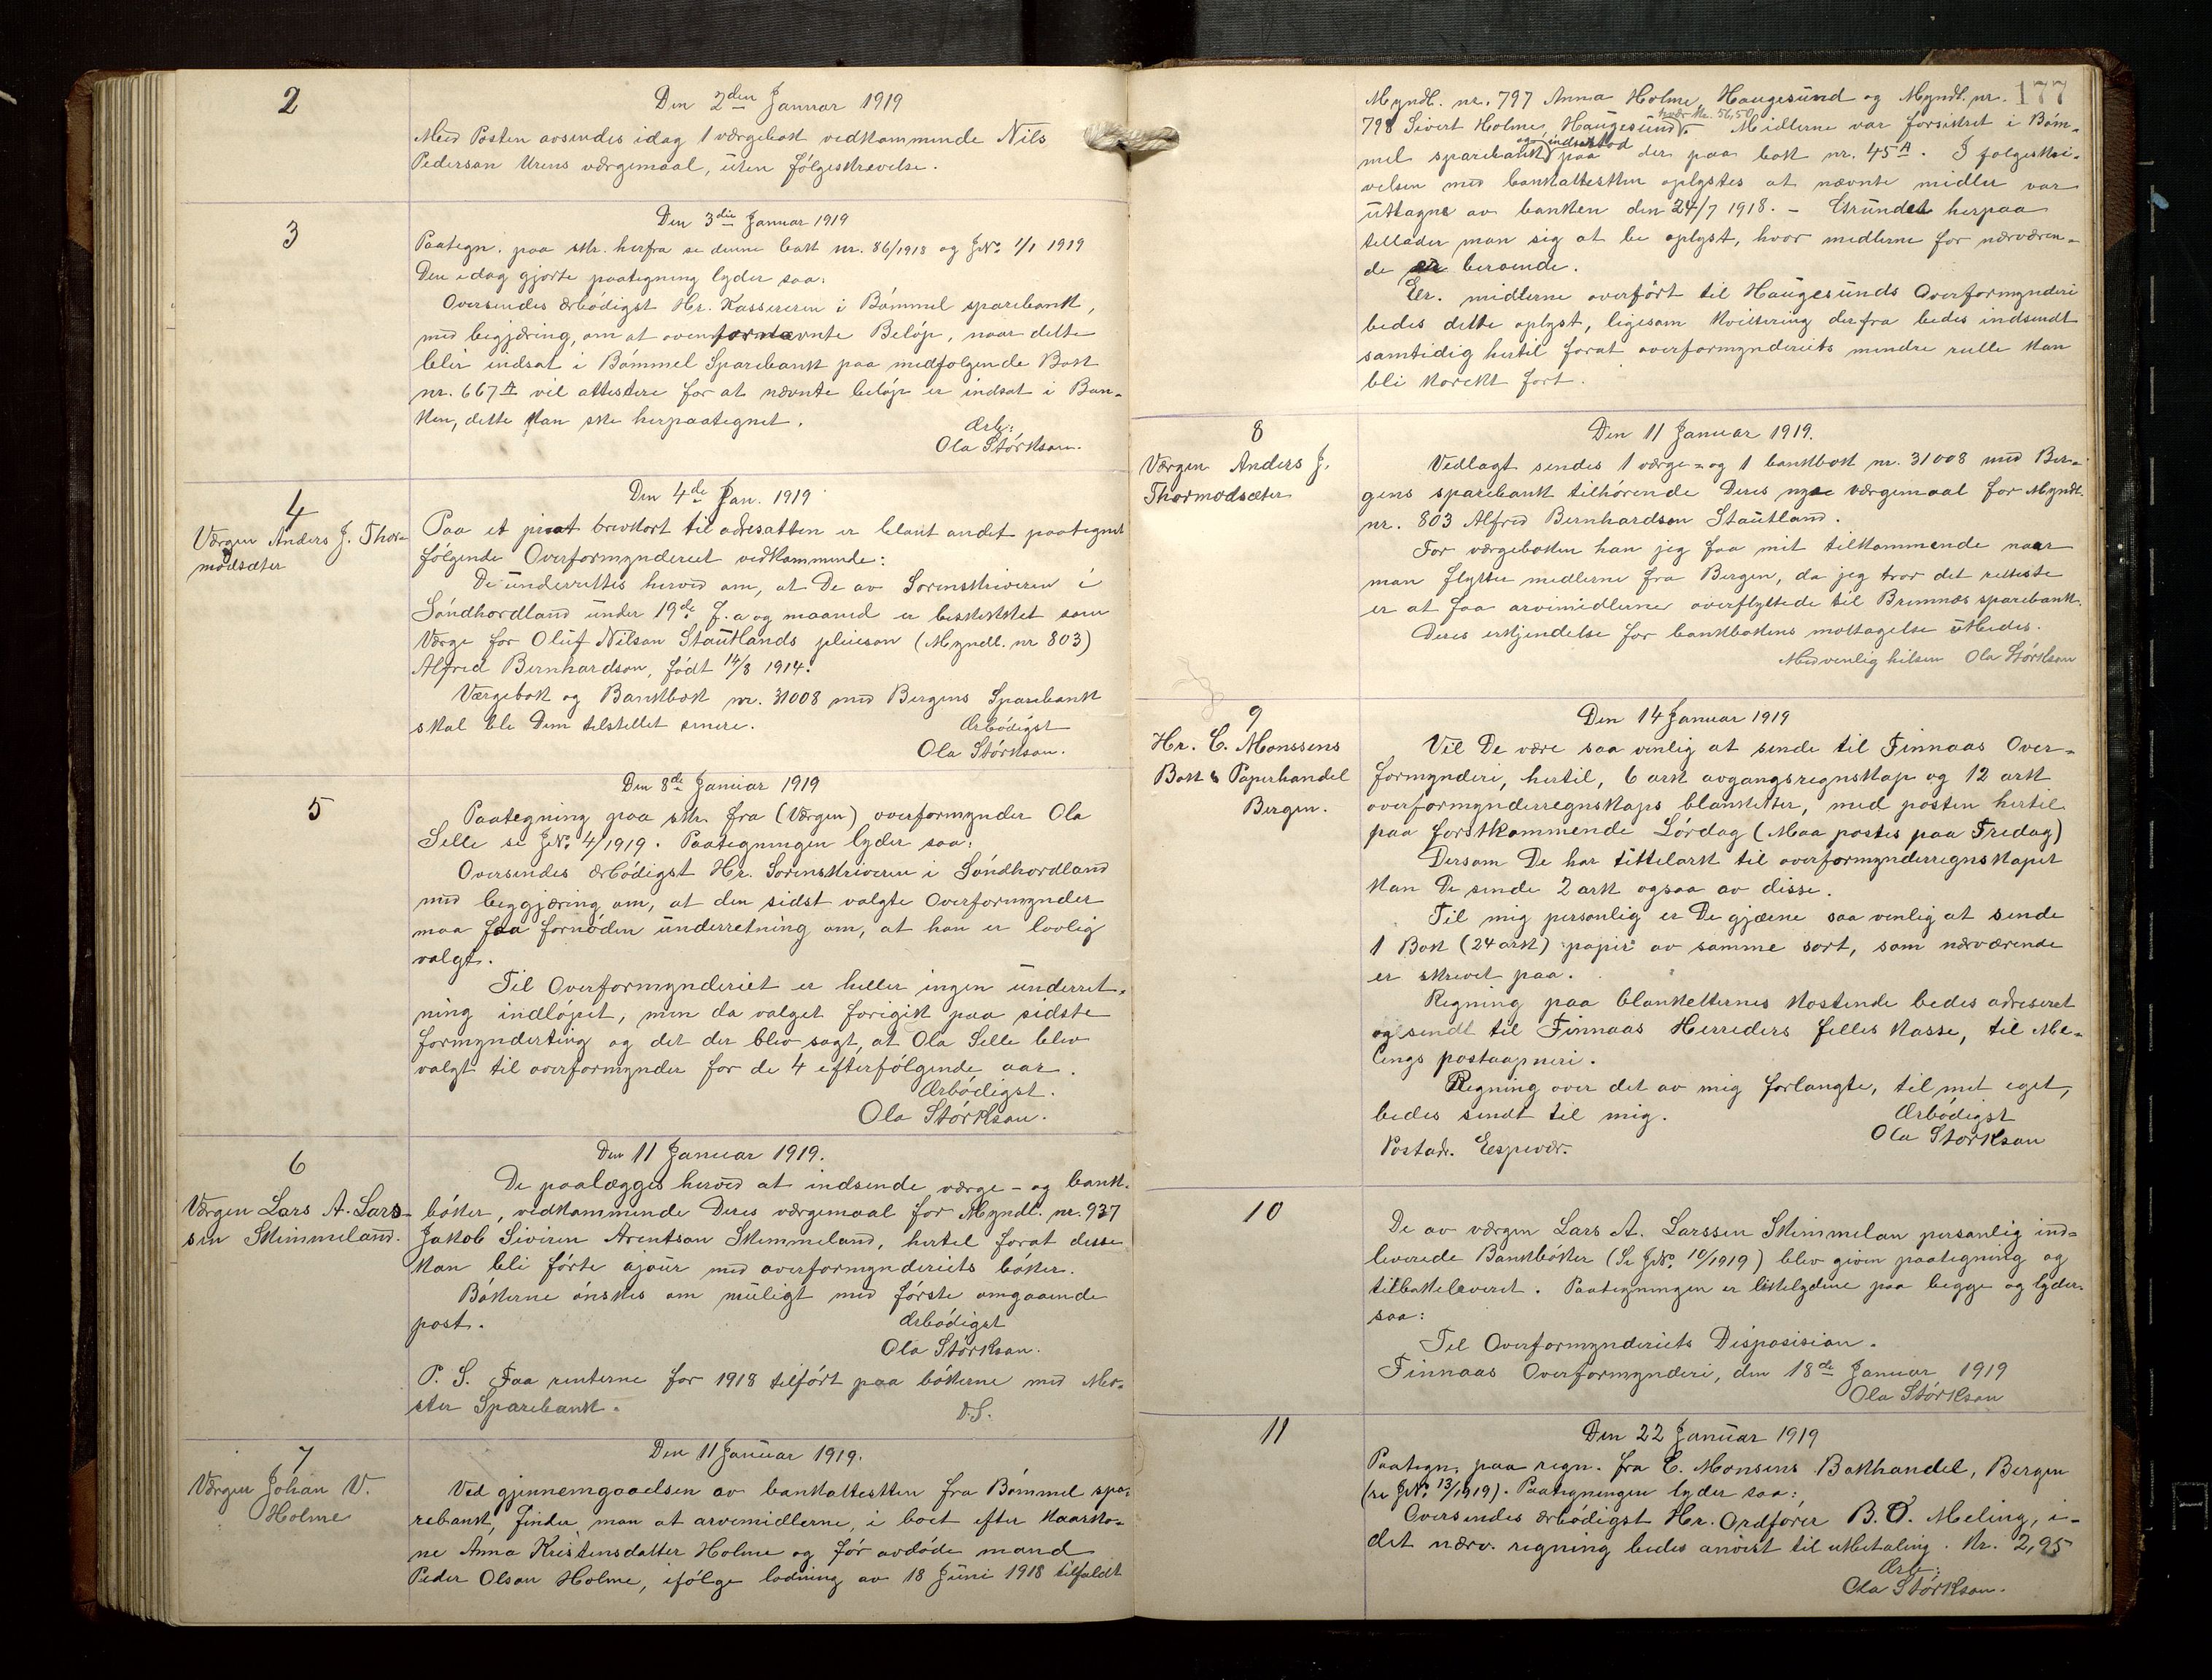 2
Den 2den Januar 1919
Med Posten avsendes idag 1 værgebok vedkommende Nils
Pederson Urens værgemaal, uten følgeskrevelse.
3
Den 3die Januar 1919
Paategn. paa skr. herfra se denne bok nr. 86/1918 og JNo. 1/1 1919
Den idag gjorte paategning lyder saa:
Oversendes ærbödigst Hr. Kassereren i Bömmel sparebank,
med begjæring, om at ovenfornævnte Belöp, naar dette
blir indsat i Bömmel Sparebank paa medfolgende Bok
nr. 667A vil attestere for at nævnte belöp er indsat i Ban-
ken, dette kan ske herpaategnet.
Ærb:
Ola Störkson.
4
Værgen Anders J. Thor-
modsæter
Den 4de Jan. 1919
Paa et privat brevkort til adresatten er blant andet paategnet
følgende Overformynderiet vedkommende:
De underrettes herved om, at De av Sorenskriveren i
Söndhordland under 19de f. a og maaned er beskikket som
Værge for Oluf Nilson Stautlands pleieson (Myndl. nr 803)
Alfred Bernhardson, født 14/8 1914.
Værgebok og Bankbok nr. 31008 med Bergens Sparebank
skal bli Dem tilstillet senere.
Ærbödigst
Ola Störkson.
5
Den 8de Januar 1919
Paategning paa skr. fra (Værgen) overformynder Ola
Selle se JNo. 4/1919. Paategningen lyder saa:
Oversendes ærbödigst Hr. Sorenskriveren i Söndhordland
med beggjæring om, at den sidst valgte Overformynder
maa faa fornöden underretning om, at han er lovlig
valgt.
Til Overformynderiet er heller ingen underret-
ning indlöpet, men da valget forigik paa sidste
formynderting og det der blev sagt, at Ola Selle blev
valgt til overformynder for de 4 efterfölgende aar.
Ærbödigst.
Ola Störkson.
6
Værgen Lars A. Lars-
sen Skimmeland.
Den 11 Januar 1919.
De paalægges herved at indsende værge- og bank-
böker, vedkommende Deres værgemaal for Myndl. nr. 937
Jakob Siviren Arentson Skimmeland, hertil forat disse
kan bli förte ajour med overformynderiets böker.
Bökerne önskes om muligt med förste omgaaende
post.
Ærbödigst
Ola Störkson.
P. S. Faa renterne for 1918 tilfört paa bökerne med Mos-
ster Sparebank.
D.S.
7
Værgen Johan V.
Holme
Den 11 Januar 1919.
Ved gjennemgaaelsen av bankattesten fra Bömmel spa-
rebank, finder man at arvemidlerne, i boet efter Kaarko-
ne Anna Kristensdatter Holme og för avdöde mand
Peder Olson Holme, efølge lodning av 18 Juni 1918 tilfaldt
177
Myndl. nr. 797 Anna Holme, Haugesund og Myndl. nr.
798 Sivert Holme, Haugesund. hver kr. 56,50 Midlerne var forsikret i Böm-
mel sparebank og indestod paa der paa bok nr. 45A. I folgeskri-
velsen med bankattesten oplystes at nævnte midler var
uttagne av banken den 24/7 1918. - Grundet herpaa
tellader man sig at be oplyst, hvor midlerne for nærværen-
de er beroende.
Er midlerne overfört til Haugesunds Overformynderi
bedes dette oplyst, ligesom kvittering derfra bedes indsendt
samtidig hertil forat overformynderiets mindre rulle kan
bli korekt fört.
8
Værgen Anders J.
Thormodsæter
Den 11 Januar 1919.
Vedlagt sendes 1 værge- og 1 bankbok nr. 31008 med Ber-
gens sparebank tilhörende Deres nye værgemaal for Myndl.
nr. 803 Alfred Bernhardson Stautland.
For værgeboken kan jeg faa mit tilkommende naar
man flytter midlerne fra Bergen, da jeg tror det retteste
er at faa arvimidlerne overflyttede til Bremnæs sparebank.
Deres erkjendelse for bankbokens mottagelse utbedes.
Med venlig hilsen Ola Störkson
9
Hr. C. Monssens
Bok & Papirhandel
Bergen.
Den 14 Januar 1919
Vil De være saa venlig at sende til Finnaas Over-
formynderi, hertil, 6 ark avgangsregnskap og 12 ark
overformynderregnskaps blanketter, med posten hertil
paa forstkommende Lördag (Maa postes paa Fredag)
Dersom De har tittelark til overformynderregnskapet
kan De sende 2 ark ogsaa av disse.
Til mig personlig er De gjærne saa venlig at sende
1 Bok (24 ark) papir av samme sort, som nærværende
er skrevet paa.
Regning paa blanketternes kostende bedes adreseret
og sendt til Finnaas Herreders felles kasse, til Me-
lings postaapneri.
Regning over det av mig forlangte, til met eget,
bedes sendt til mig.
Ærbödigst
Ola Störkson
Postadr. Espevær.
10
De av værgen Lars A. Larssen Skimmelan personlig ind-
leverede Bankböker (Se JNo. 10/1919) blev given paategning og
tilbakeleveret. Paategningen er likelydene paa begge og lyder
saa:
Til Overformynderiets Disposision.
Finnaas Overformynderi, den 18de Januar 1919
Ola Störkson
11
Den 22 Januar 1919
Paategn. paa regn. fra C. Monsens Bokhandel, Bergen
(se JNo. 13/1919). Paategningen lyder saa:
Oversendes ærbödigst Hr. Ordförer B. O. Meling, i-
det nærv. regning bedes anvist til utbetaling. Kr. 2,95
Ærb:
Ola Störkson.